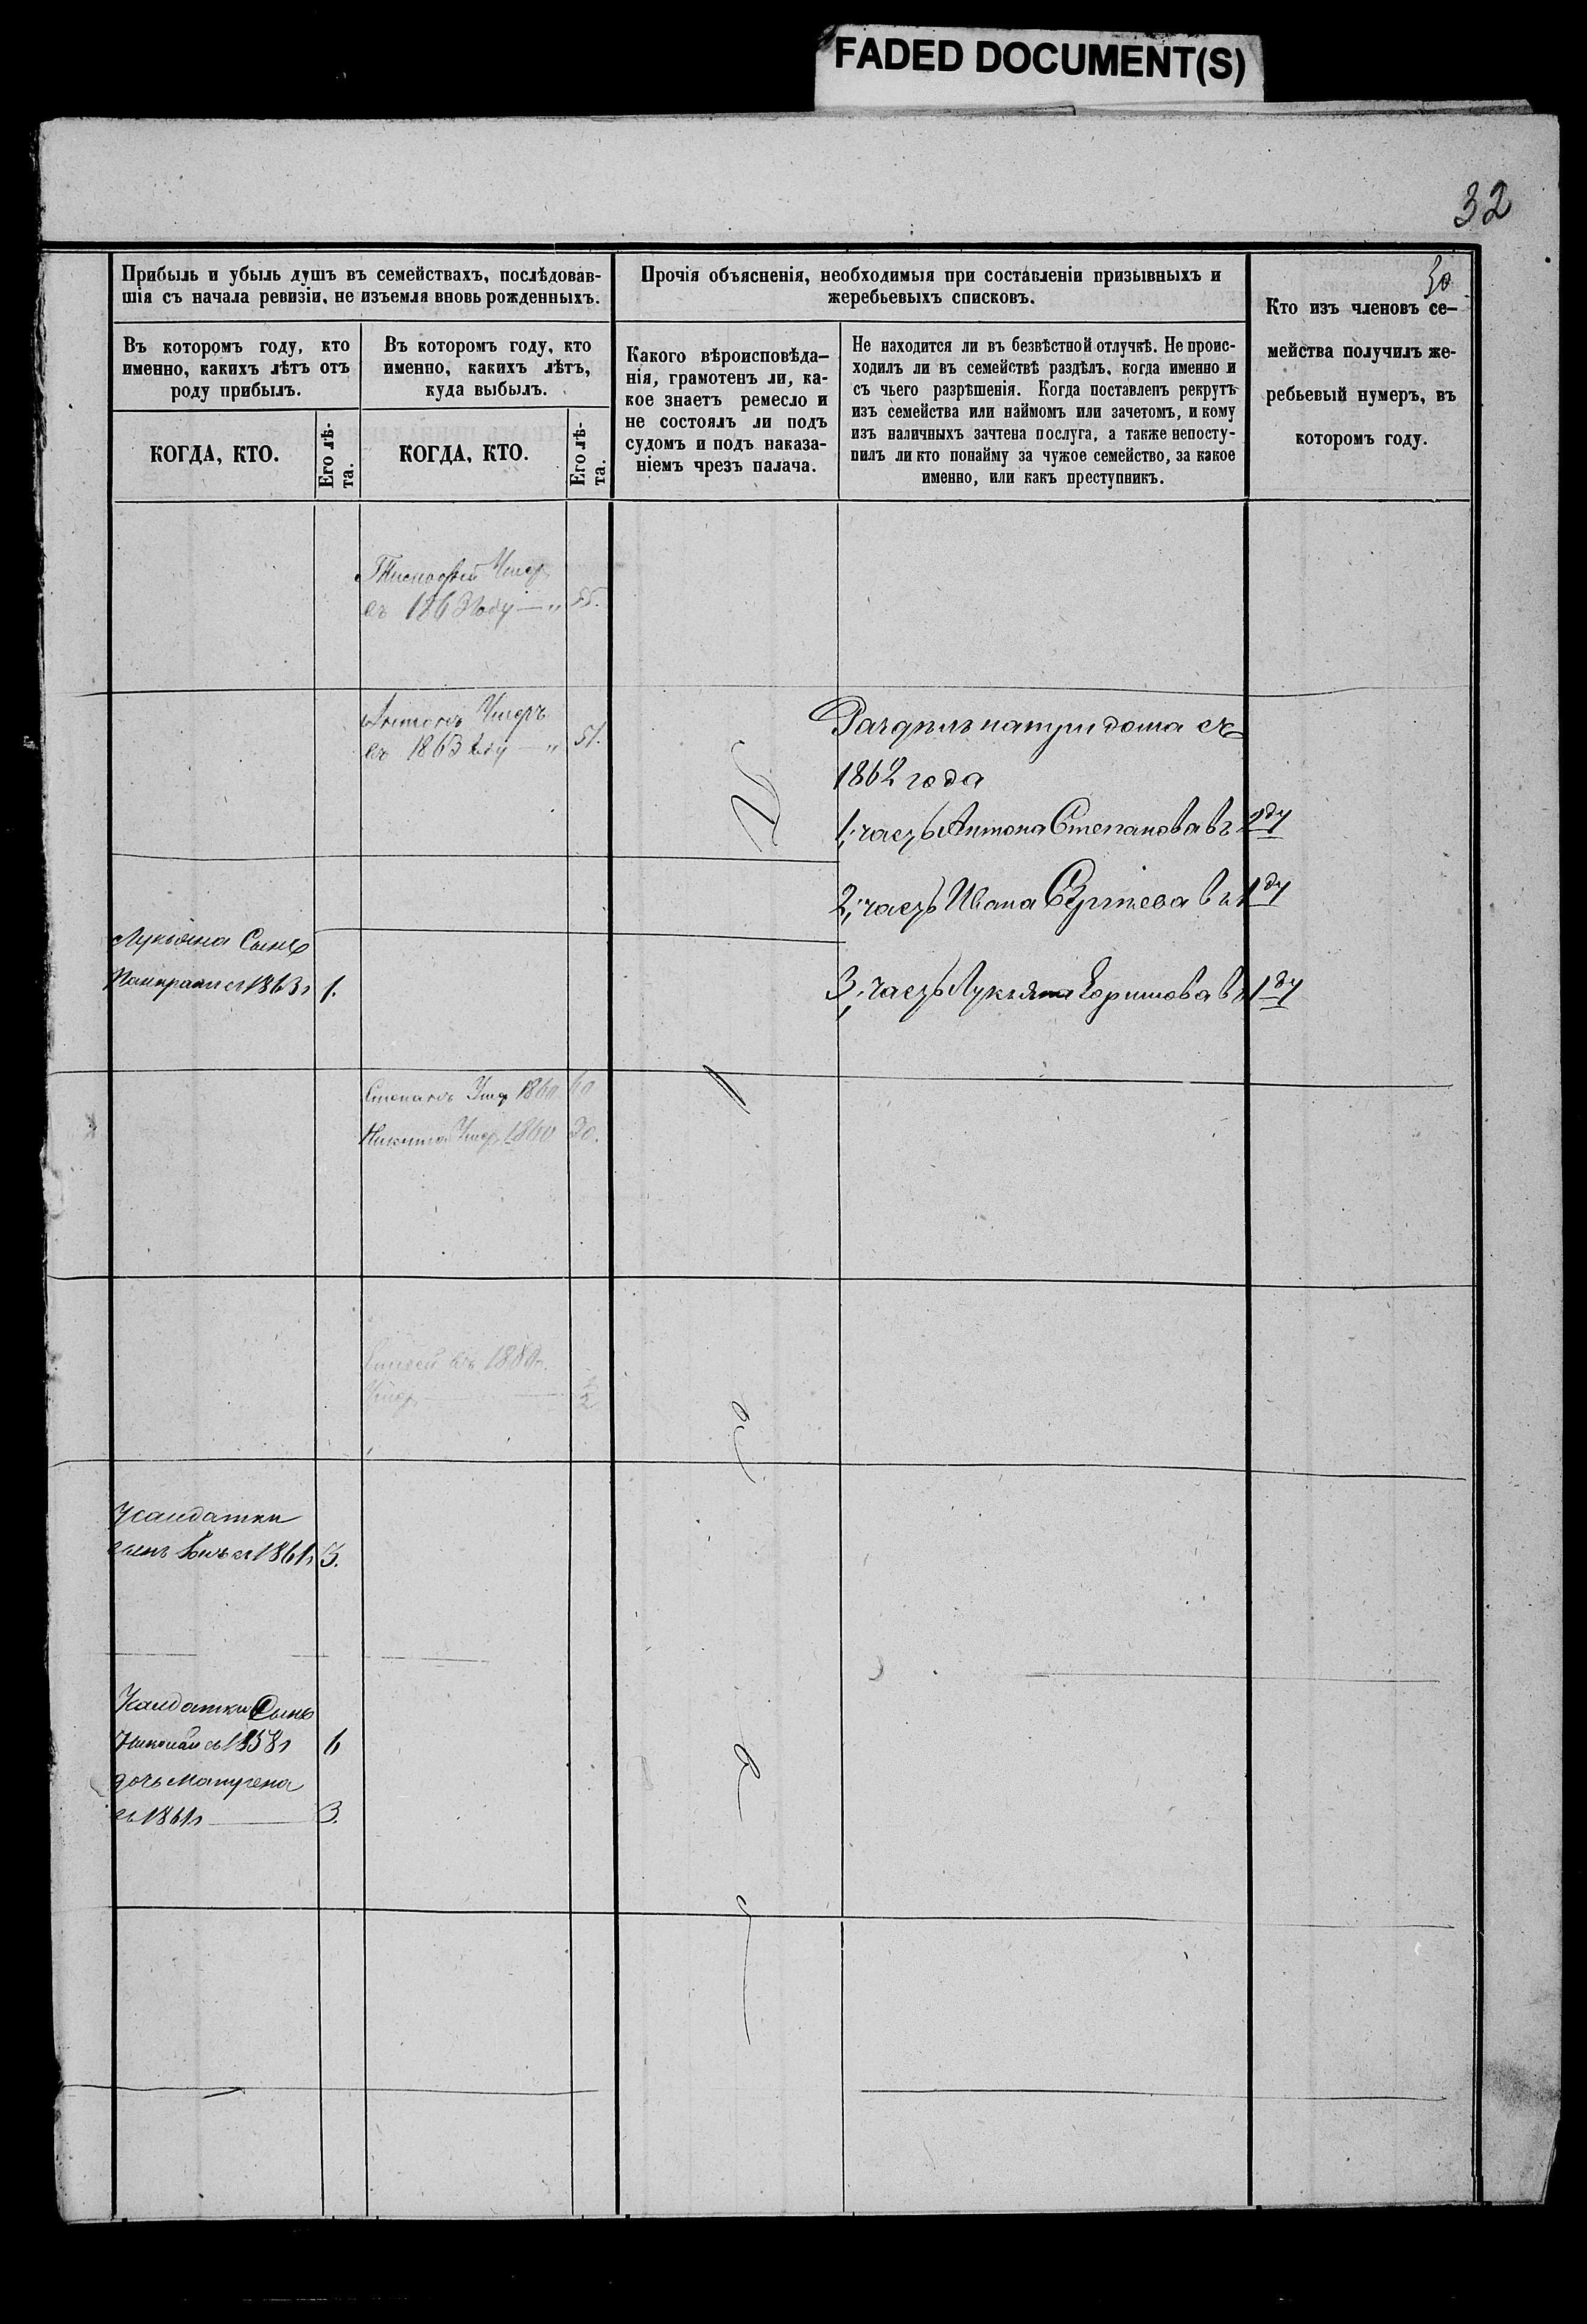 FADED DOCUMENT(S)
32
30
Прибыль и убыль душъ въ семействахъ, послѣдовав-
шія съ начала ревизіи, не изъемля вновь рожденныхъ.
Въ которомъ году, кто
именно, какихъ лѣтъ отъ
роду прибылъ.
КОГДА, КТО.
Его лѣ-
та.
Въ которомъ году, кто
именно, какихъ лѣтъ,
куда выбылъ.
КОГДА, КТО.
Его лѣ-
та.
Прочія объясненія, необходимыя при составленіи призывныхъ и
жеребьевыхъ списковъ.
Какого вѣроисповѣда-
нія, грамотенъ ли, ка-
кое знаетъ ремесло и
не состоялъ ли подъ
судомъ и подъ наказа-
ніемъ чрезъ палача.
Не находится ли въ безвѣстной отлучкѣ. Не проис-
ходилъ ли въ семействѣ раздѣлъ, когда именно и
съ чьего разрѣшенія. Когда поставленъ рекрутъ
изъ семейства или наймомъ или зачетомъ, и кому
изъ наличныхъ зачтена послуга, а также непосту-
пилъ ли кто понайму за чужое семейство, за какое
именно, или какъ преступникъ.
Кто изъ членовъ се-
мейства получилъ же-
ребьевый нумеръ, въ
которомъ году.
Умер
въ 1863 году — " 55.
Антонъ Умеръ
въ 1863 году — " 51.
на три дома съ
1862 года
1, часть Антона Степанова въ 2 ду
2, часть Ивана въ 1 ду
3, часть Лукьяна въ 1 ду
Лукьяна Сынъ
1863 г 1.
Степанъ Умер 1860 60
Никита Умер 1860 30.
Умер —
сынъ 1861 г 3.
Сынъ
Николай въ 1858 г 6
дочь
въ 1861 г — 3.